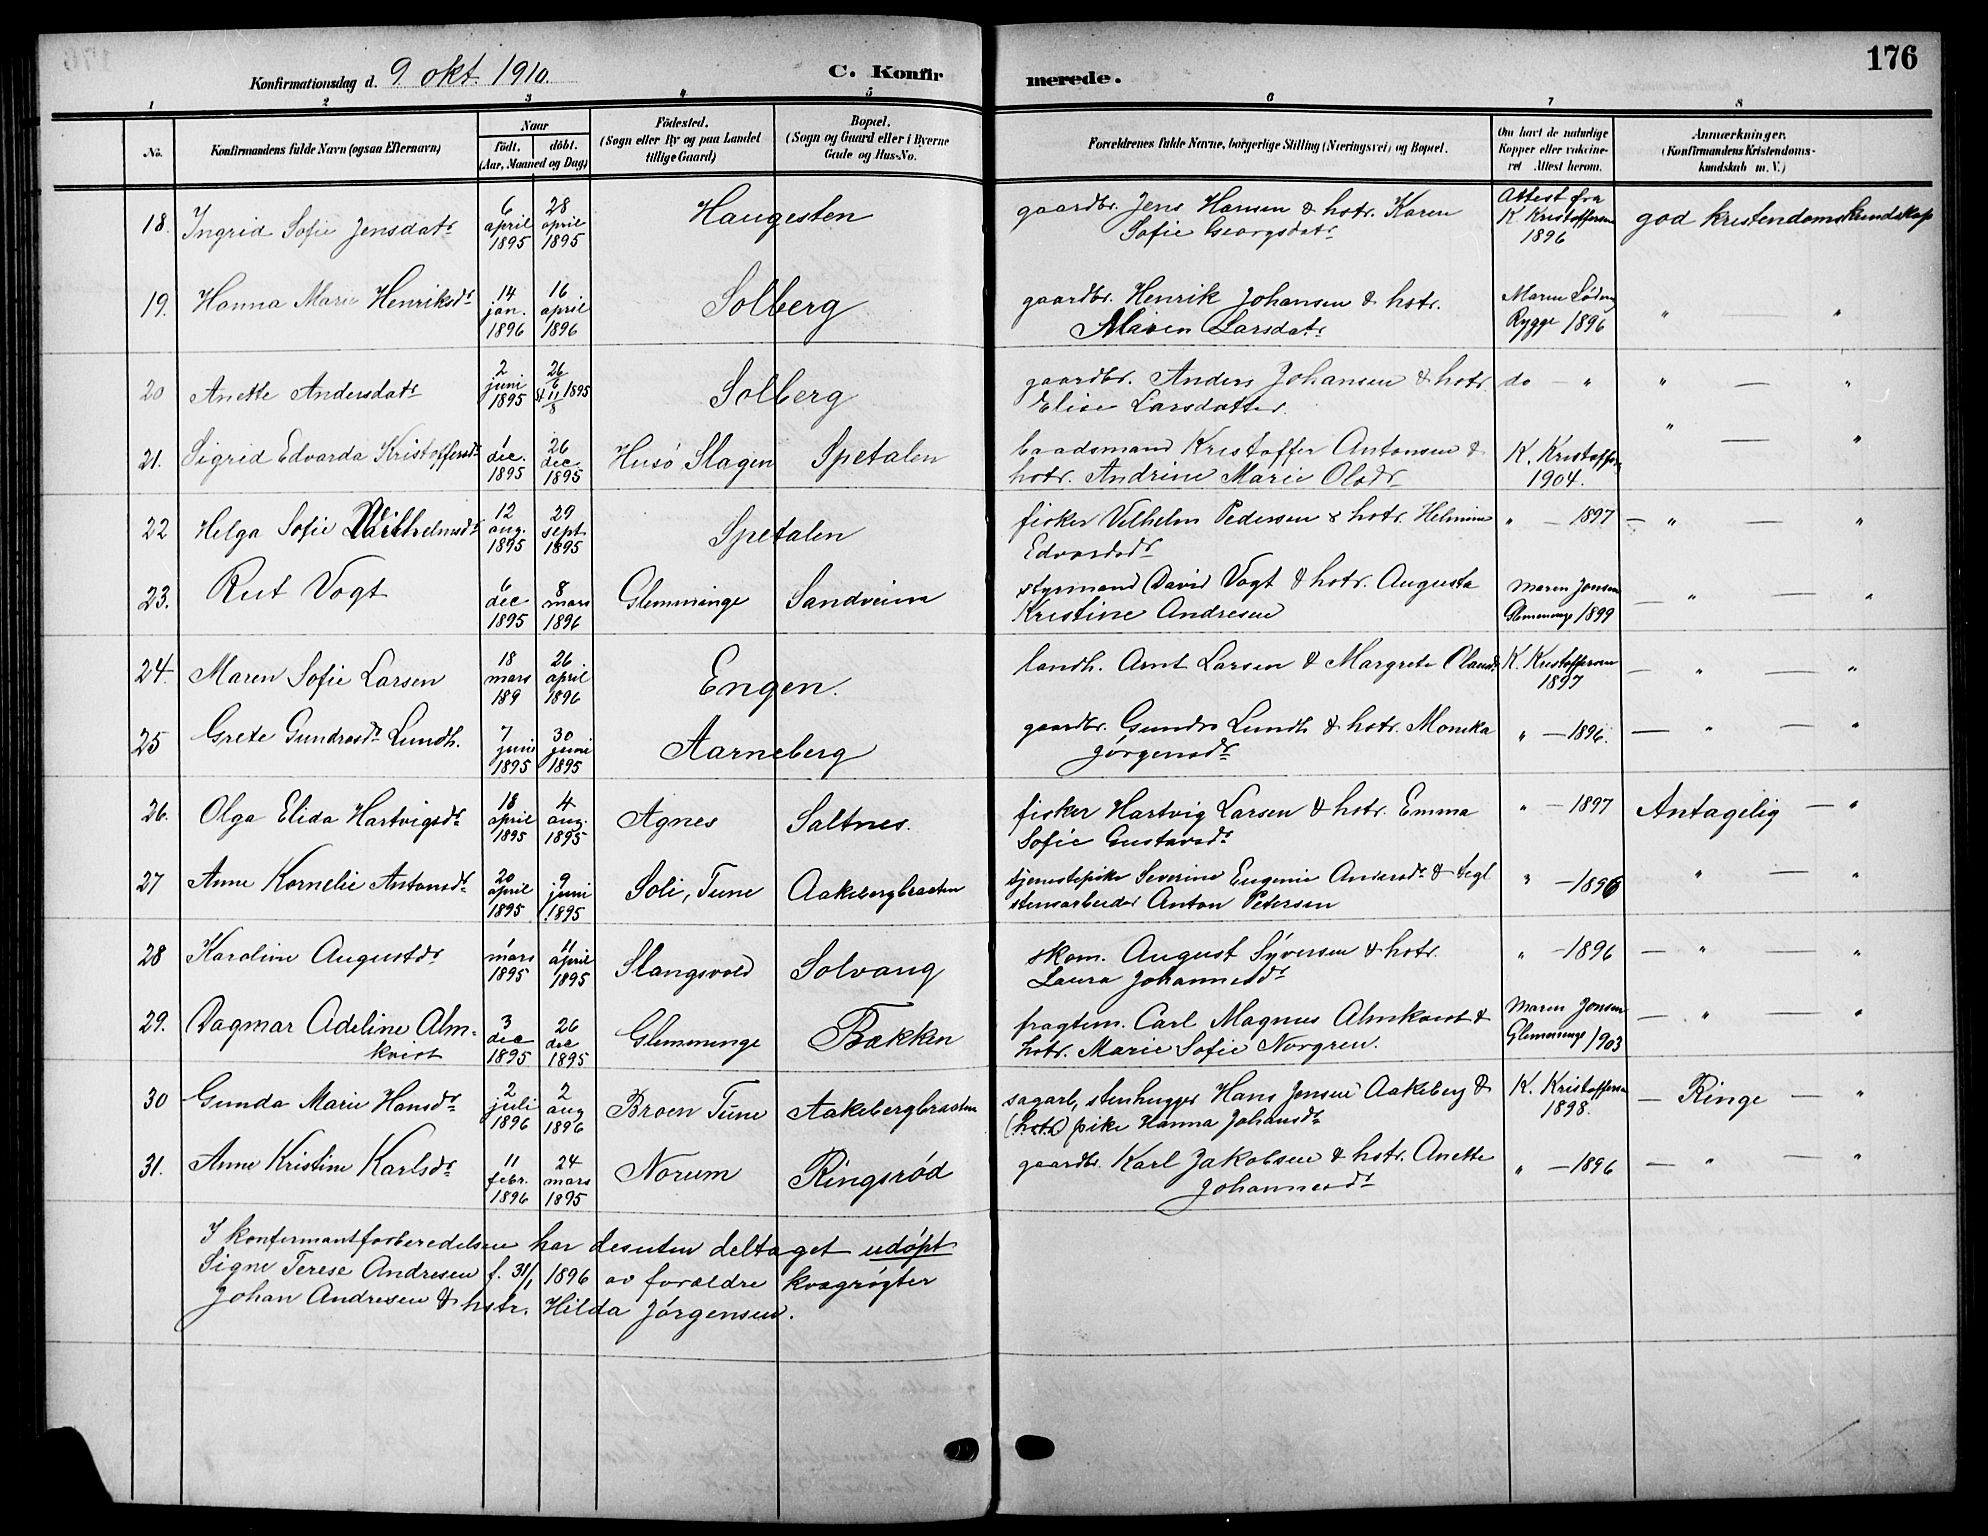 176
Konfirmationsdag d. 9. okt. 1910.
C. Konfirmerede.
1 2 3 4 5 6 7 8
No. Konfirmandens fulde Navn (ogsaa Efternavn) Naar født. døbt. (Aar, Maaned og Dag) Fødested. (Sogn eller By og paa Landet tillige Gaard) Bopæl. (Sogn og Gaard eller i Byerne Gade og Hus-No.) Forældrenes fulde Navne, borgerlige Stilling (Næringsvei) og Bopæl. Om havt de naturlige Kopper eller vakcineret Attest herom. Anmærkninger. (Konfirmandens Kristendomskundskab m. V.)
18. Ingrid Sofie Jensdatr 6 april 1895 28 april 1895 Haugesten gaardbr. Jens Hansen & hstr. Karen Sofie Georgsdatr Attest fra K. Kristoffersen 1896 god kristendomskundskap
19. Hanna Marie Henriksdr 14 jan. 1896 16 april 1896 Solberg gaardbr. Henrik Johansen & hstr. Maren Larsdatr Rygge 1896 " — "
20 Anette Andersdatr 2 juni 1895 26/6 & 11/8 1895 Solberg gaardbr. Anders Johansen & hstr. Elise Larsdatter. do — " " — "
21. Sigrid Edvarda Kristoffersdr 1 dec. 1895 26 dec. 1895 Husø Slagen Spetalen baadsmand Kristoffer Antonsen & hstr. Andrine Marie Olsdr K. Kristoffersen 1904. " — "
22 Helga Sofie Vilhelmsdr 12 aug. 1895 29 sept 1895 Spetalen fisker Vilhelm Pedersen & hstr. Helmine Edvardsdr " — 1897 — " — "
23. Rut Vogt 6 dec 1895 8 mars 1896 Glemminge Sandveien styrmand David Vogt & hstr. Augusta Kristine Andresen Maren Jonsen Glemminge 1899 — " — "
24. Maren Sofie Larsen 18 mars 189 26 april 1896 Engen. landh. Arnt Larsen & Margrete Olausdr K. Kristoffersen 1897 — " — "
25 Grete Gundrosdr Lundh. 7 juni 1895 30 juni 1895 Aarneberg gaardbr. Gundro Lundh & hstr. Monika Jørgensdr " — 1896. — " — "
26. Olga Elida Hartvigsdr 18 april 1895 4 aug. 1895 Agnes Saltnes. fisker Hartvig Larsen & hstr. Emma Sofie Gustavsdr " — 1897 Antagelig — "
27 Anne Kornelie Antonsdr 20 april 1895 9 juni 1895 Soli, Tune Aakebergbraaten tjenestepike Severine Eugenie Andersdr & teglstensarbeider Anton Petersen " — 1896 " — "
28 Karoline Augustdr 1 mars 1895 11 april 1895 Slangsvold Solvang skom. August Syversen & hstr. Laura Johannesdr " — 1896 — " — "
29. Dagmar Adeline Almkvist 3 dec 1895 26 dec 1895 Glemminge Bakken fragtem. Carl Magnus Almkvist & hstr. Marie Sofie Norgren. Maren Jonsen Glemminge 1903 — " — "
30 Gunda Marie Hansdr 2 juli 1896 2 aug 1896 Broen Tune Aakebergbraaten sagarb, stenhugger Hans Jensen Aakeberg & (hstr.) pike Hanna Johansdr K. Kristoffersen 1898. — Ringe — "
31. Anne Kristine Karlsdr 11 febr. 1896 24 mars 1895 Norum Ringsrød gaardbr. Karl Jakobsen & hstr. Anette Johannesdr " — 1896 — " — "
I konfirmantforberedelsen har desuten deltaget udøpt
Signe Terese Andresen f. 31/1 1896 av forældre kvægrøgter
Johan Andresen & hstr. Hilda Jørgensen.